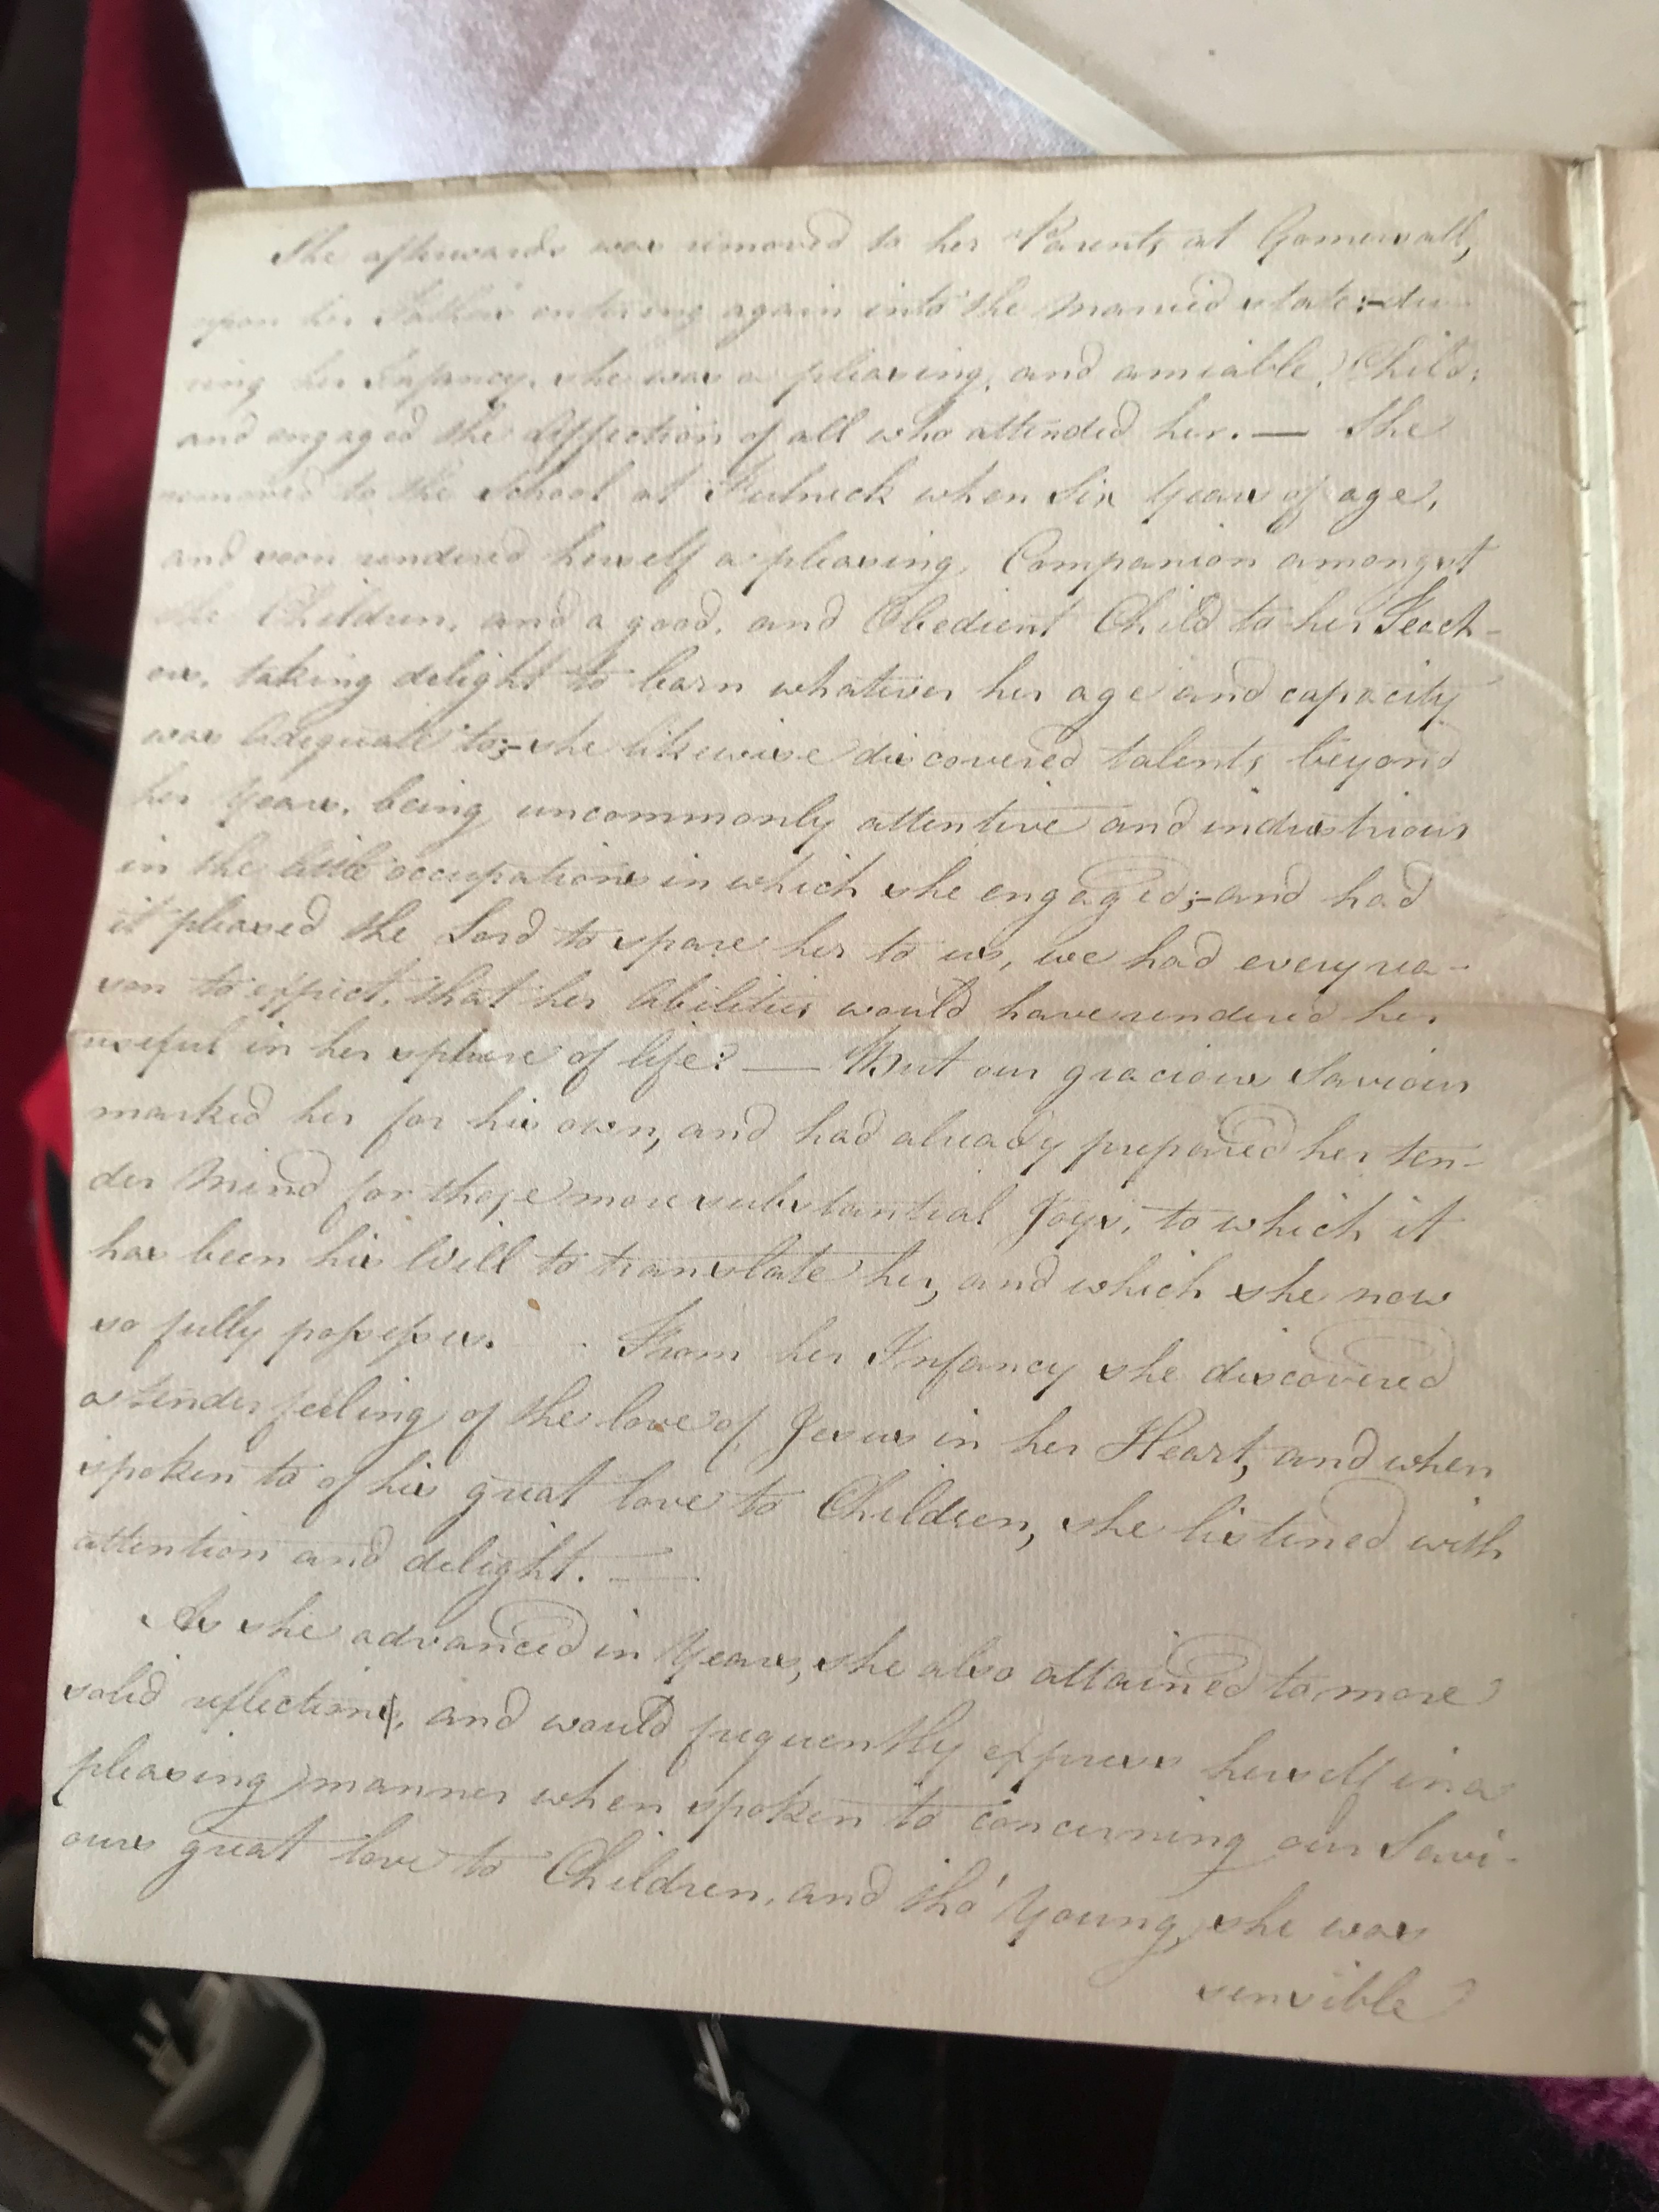 She afterwards was removed to her Parents at Gomersall,
upon her Father entering again into the Married state:-du-
ring her Infancy, she was a pleasing, and amiable, Child;
and engaged the Affection of all who attended her. — She
removed to the School at Fulneck when Six Years of age,
and soon rendered herself a pleasing, Companion amongst
the Children, and a good, and Obedient Child to her Teach-
ers, taking delight to learn whatever her age and capacity
was Adequate to;- she likewise discovered talents beyond
her Years, being uncommonly attentive and industrious
in the little occupations in which she engaged;- and had
it pleased the Lord to spare her to us, we had every rea-
son to expect, that her Abilities would have rendered her
useful in her sphere of life: — But our gracious Saviour
marked her for his own, and had already prepared her ten-
der Mind for those more substantial Joys, to which it
has been his Will to translate her, and which she now
so fully possesses. — From her Infancy she discovered
a tender feeling of the love of Jesus in her Heart, and when
spoken to of his great love to Children, she listened with
attention and delight. —
As she advanced in Years, she also attained to more
solid reflection, and would frequently express herself in a
pleasing manner when spoken to concerning our Savi-
ours great love to Children, and tho' Young, she was
sensible